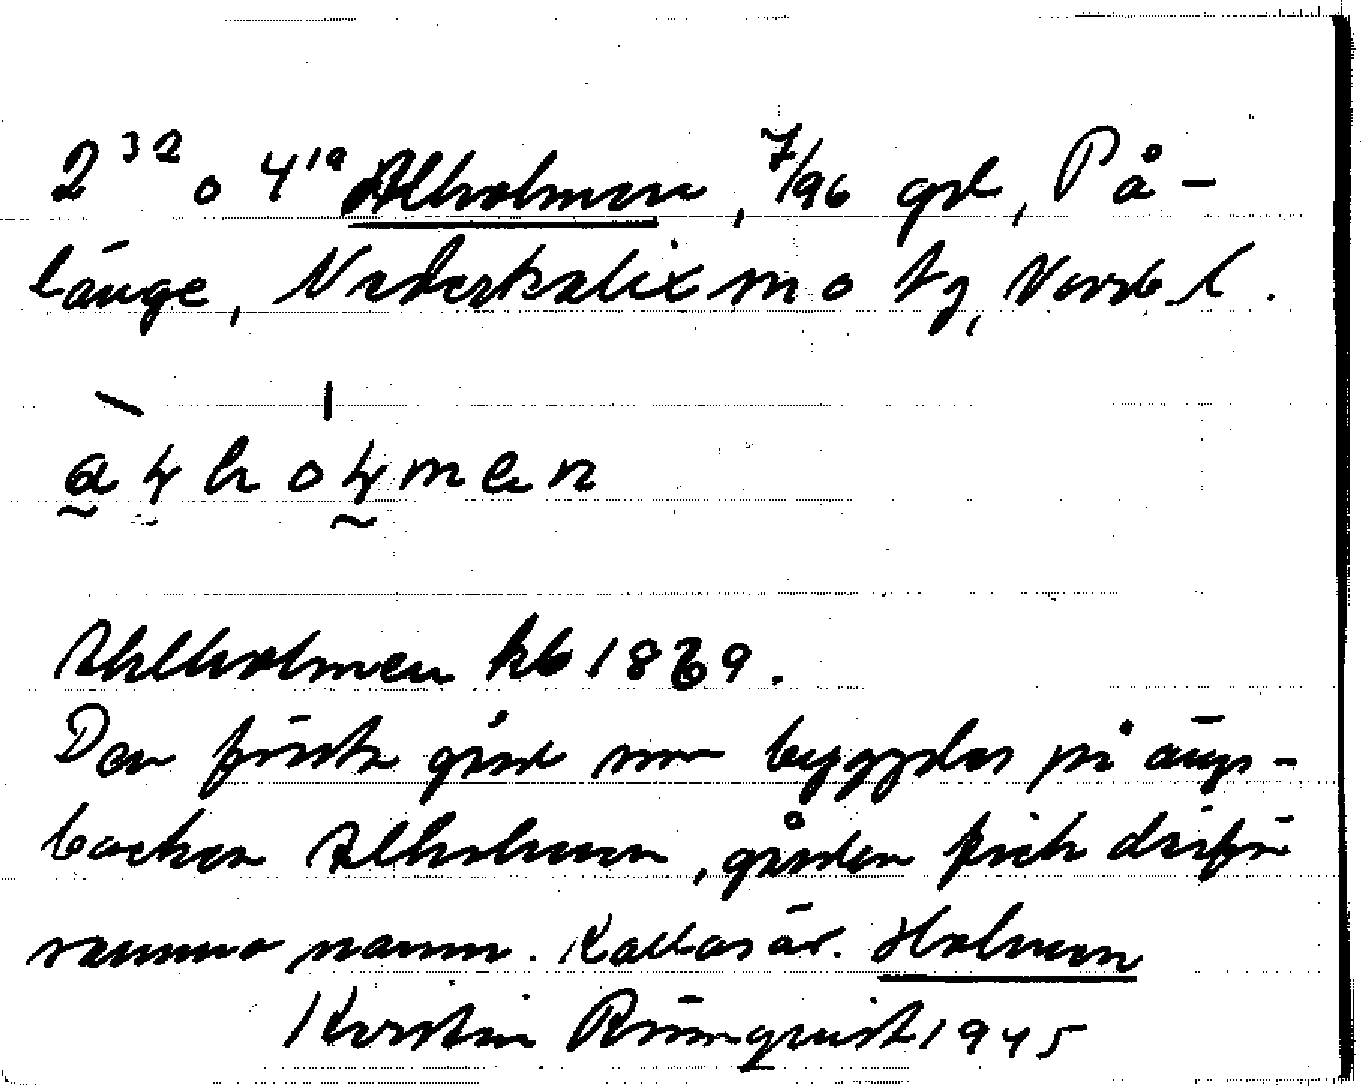 2³² o 4¹⁹ Alholmen, 7/96 grd, På-
länge, Nederkalix m o tg, Norrb. l.
ałhołmen
Ahlholmen kb 1869.
Den första gård som byggdes på ängs-
backen Alholmen, gården fick därför
samma namn. Kallas äv. Holmen
Kerstin Rönnquist 1945